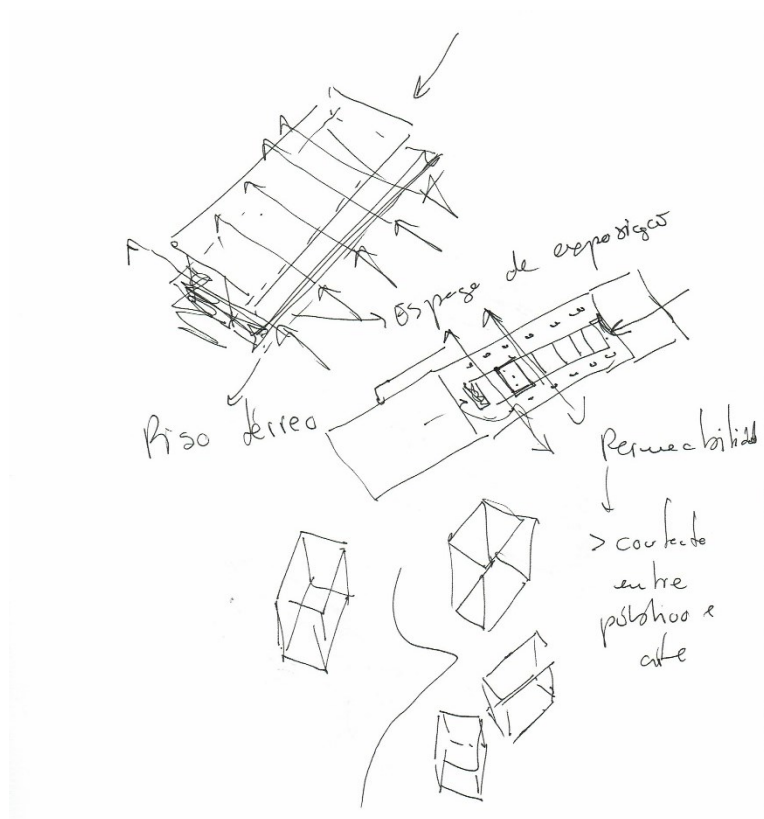 Espaço de exposição
Piso térreo
Permeabilidade
> contacto
entre
público e
arte